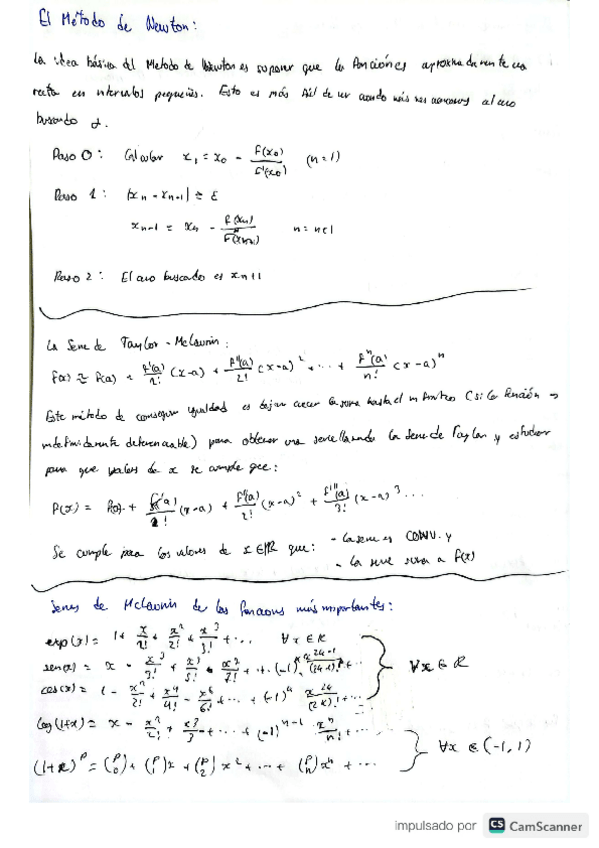 El Método de Newton:
La idea básica del Metodo de Newton es suponer que la función es aproximadamente una
recta en intervalos pequeños. Esto es más fácil de ver cuando más nos acercamos al cero
buscando α.
Paso 0: Calcular x₁ = x₀ - f(x₀)/f'(x₀) (n=1)
Paso 1: |xₙ - xₙ₋₁| ≥ ε
xₙ₋₁ = xₙ - f(xₙ)/ n = n+1
Paso 2: El cero buscado es xₙ+1
La Serie de Taylor - McLaurin:
f(x) ≈ f(a) + f'(a)/1! (x-a) + f''(a)/2! (x-a)² + ... + fⁿ(a)/n! (x-a)ⁿ
Este método de conseguir igualdad es dejar crecer la suma hasta el infinito (si la función es
indefinidamente diferenciable) para obtener una serie llamada la Serie de Taylor y estudiar
para que valores de x se cumple que:
f(x) = f(a) + f'(a)/1! (x-a) + f''(a)/2! (x-a)² + f'''(a)/3! (x-a)³ ...
Se cumple para los valores de x ∈ ℝ que: - La serie es CONV. y
- La serie suma a f(x)
Series de McLaurin de las funciones más importantes:
exp(x) = 1 + x/1! + x²/2! + x³/3! + ... ∀x ∈ ℝ
sen(x) = x - x³/3! + x⁵/5! - x⁷/7! + ... ∀x ∈ ℝ
cos(x) = 1 - x²/2! + x⁴/4! - x⁶/6! + ... + (-1)ᵏ x²ᵏ/(2k)! + ...
log(1+x) = x - x²/2! + x³/3 - ... + (-1)ⁿ⁻¹ xⁿ/n! + ...
(1+x)ᵖ = (p 0) + (p 1)x + (p 2)x² + ... + (p n)xⁿ + ... ∀x ∈ (-1, 1)
impulsado por CS CamScanner